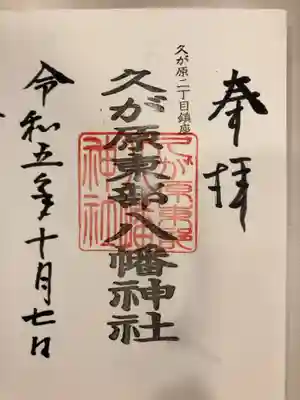 奉拝
久が原二丁目鎮座
久が原東部八幡神社
久が原東部八幡神社
令和五年十月七日